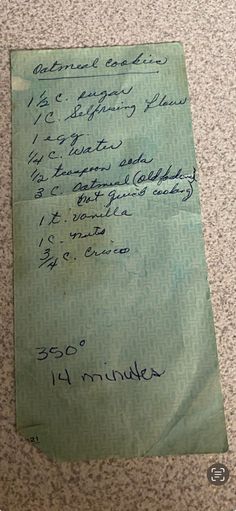 Oatmeal Cookies
1 1/2 C. sugar
1 C. Selfrising flour
1 egg.
1/4 C. Water
1/2 teaspoon soda
3 C. Oatmeal (old fashion
not quick cooking)
1 t. Vanilla
1 C. nuts
3/4 C. Crisco
350°
14 minutes
21